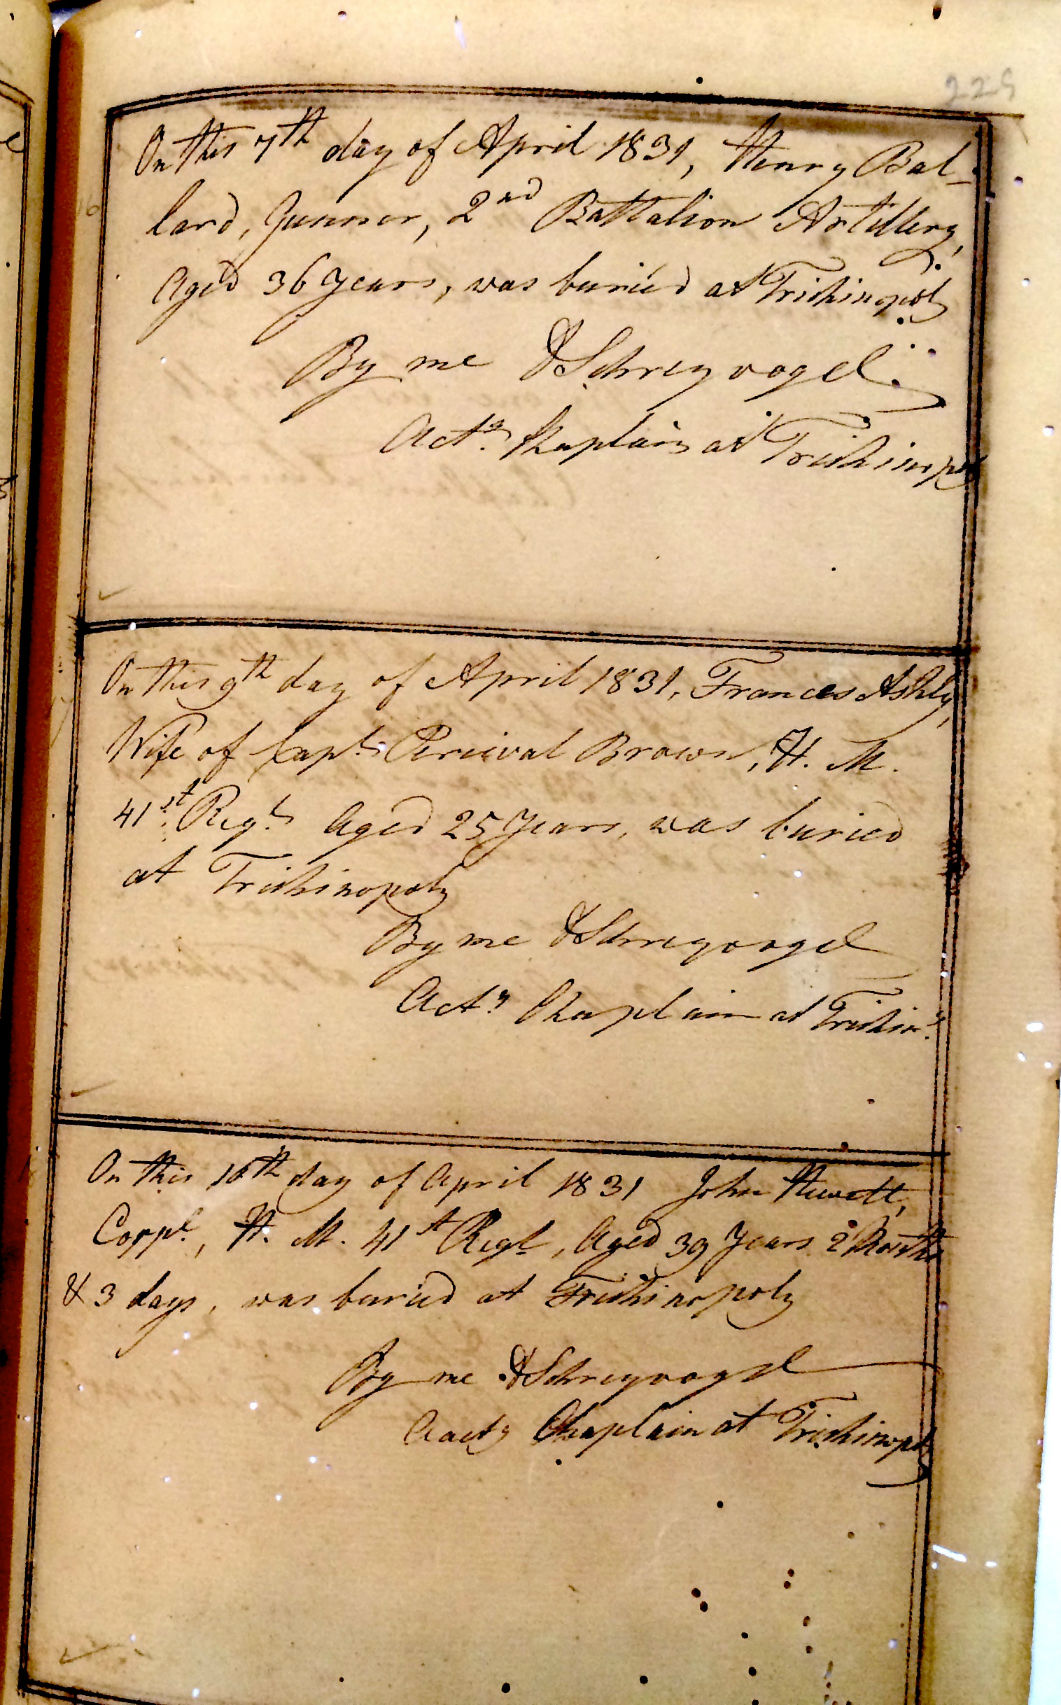 225
On this 7th day of April 1831, Henry Bal-
lard, Gunner, 2nd Battalion Artillery,
Aged 36 Years, was buried at Trichinopoly
By me DSchreyvogel
Actg. Chaplain at Trichinopoly
On this 9th day of April 1831, Frances Ashly,
Wife of Capt. Percival Brown, H. M.
41st Regt. Aged 25 Years, was buried
at Trichinopoly
By me DSchreyvogel
Actg. Chaplain at Trichin.y
On this 16th day of April 1831 John Hewett,
Corpl, H. M. 41st Regt, Aged 39 Years 2 Months
& 3 days, was buried at Trichinopoly
By me DSchreyvogel
Aactg Chaplain at Trichinopoly